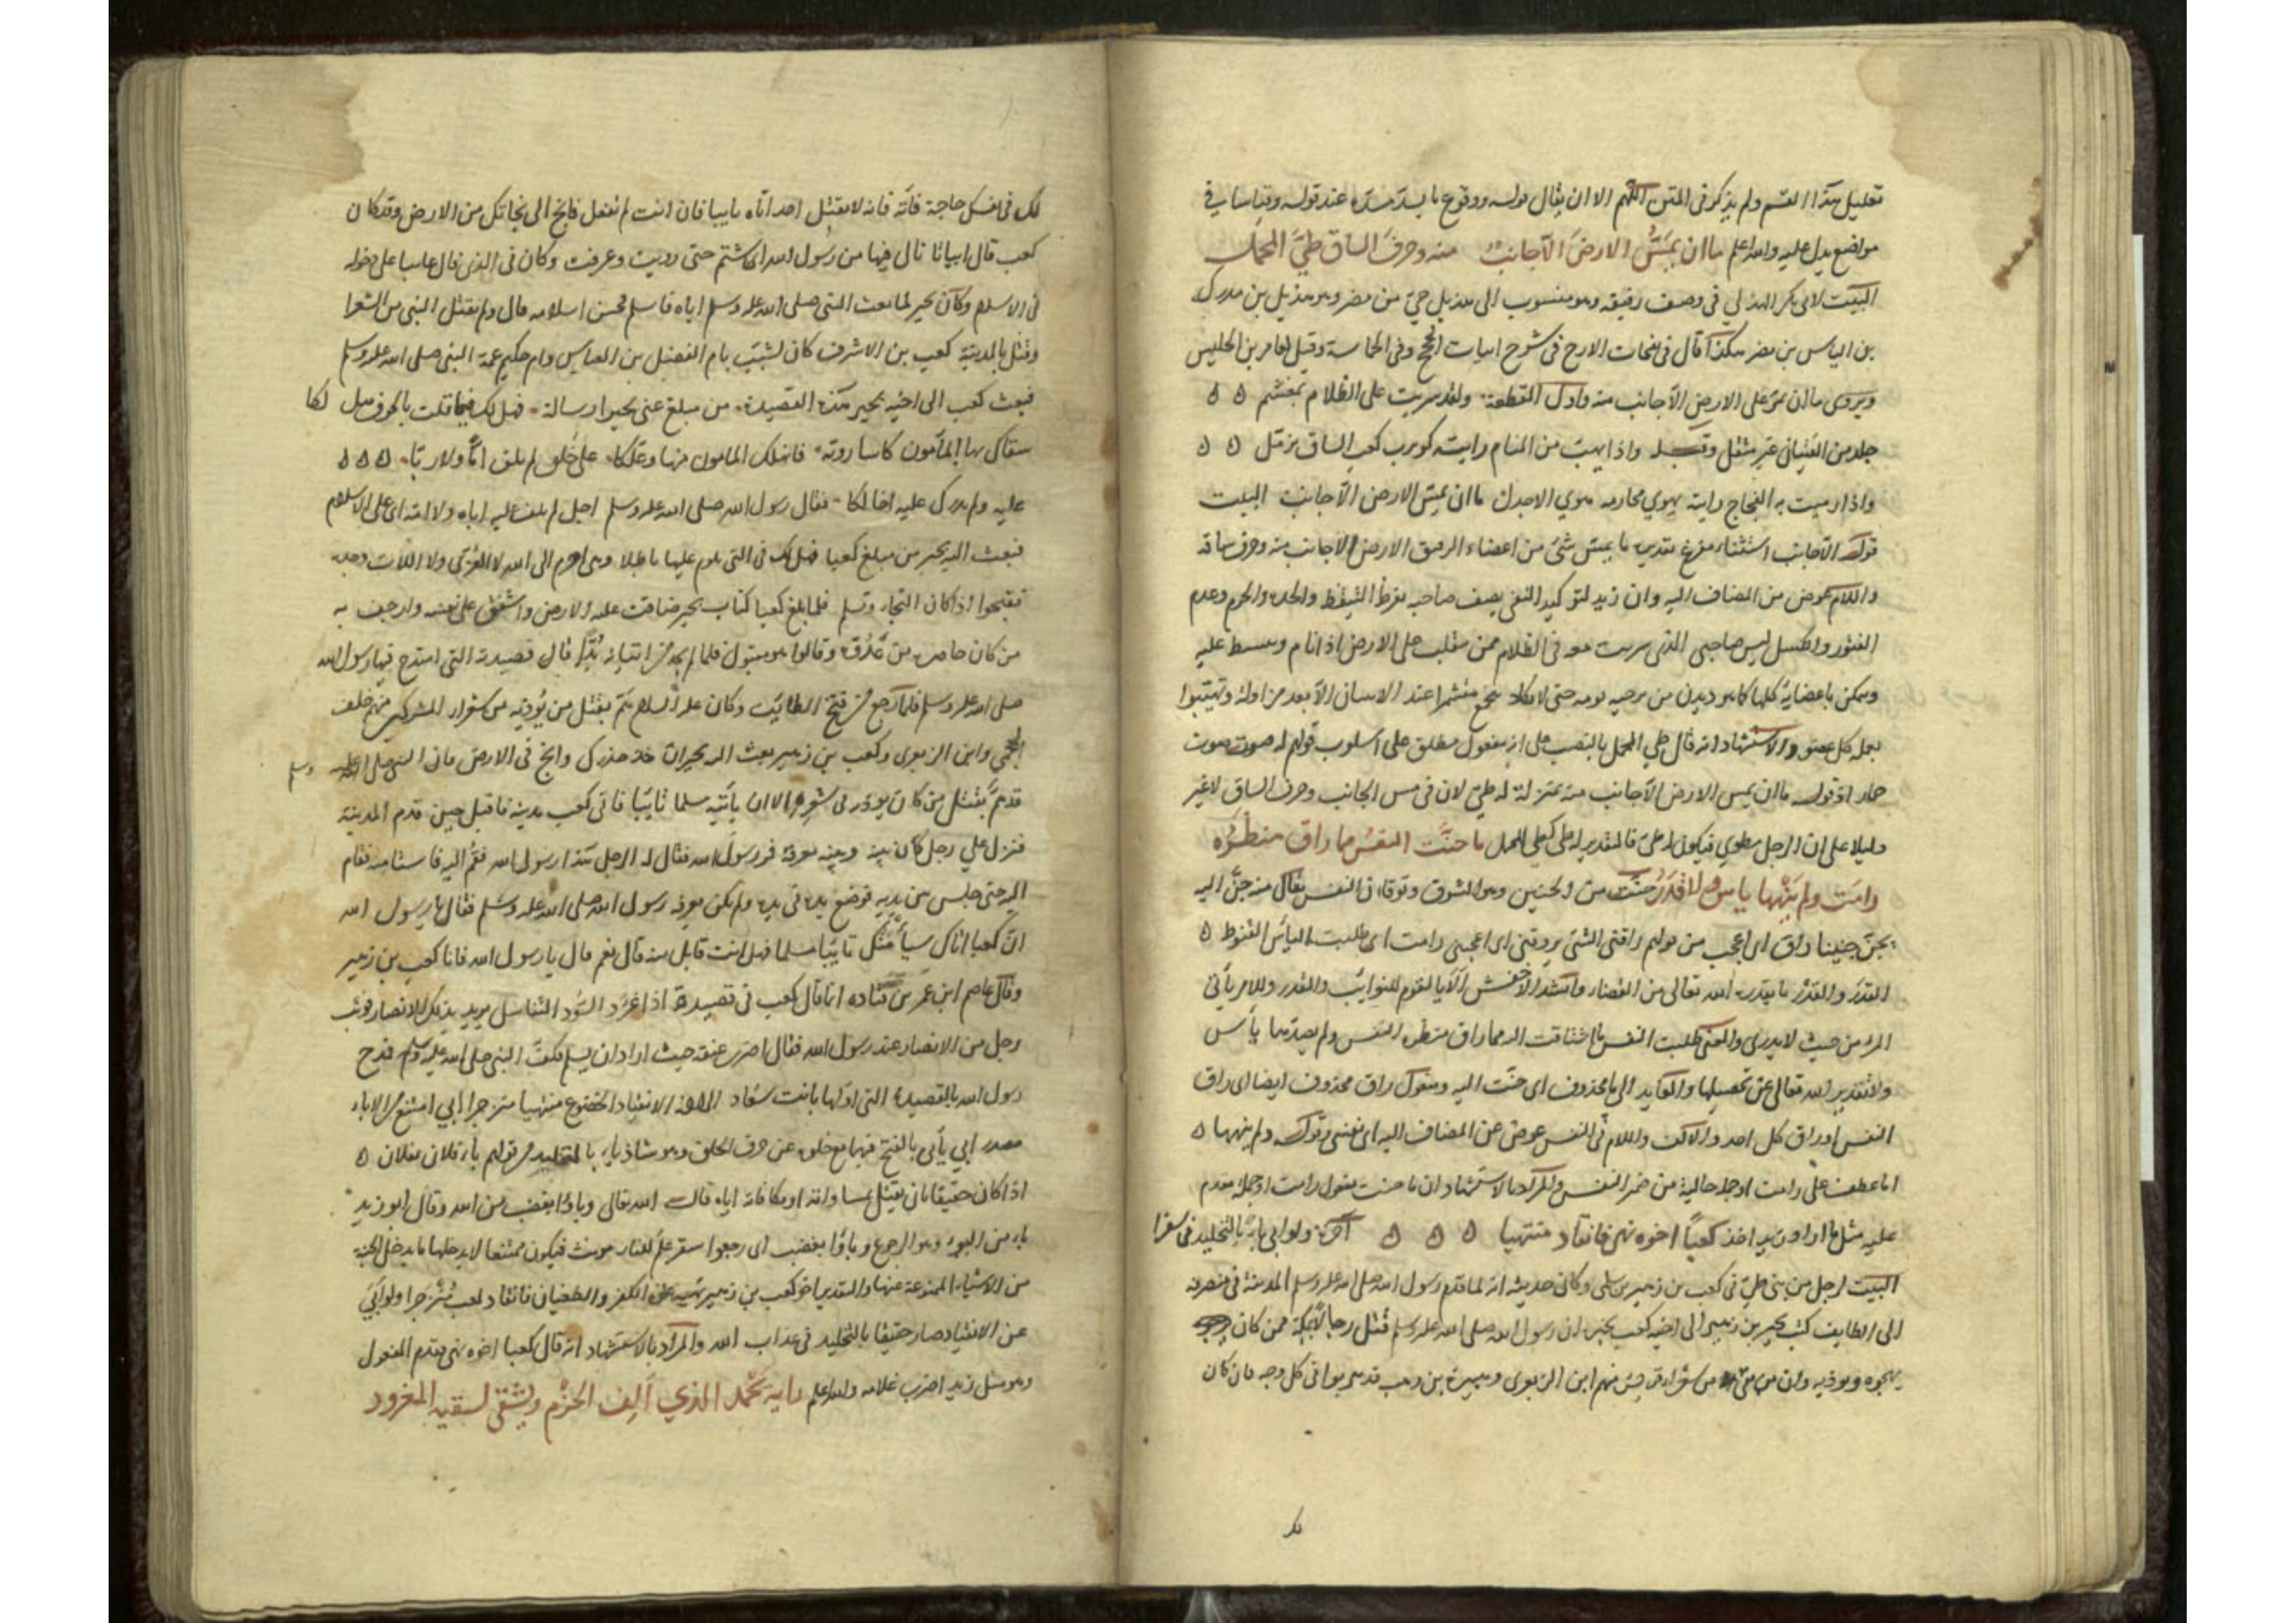 تعليل هذا القسم ولم يذكر في المتن اللهم الا ان يقال قوله ووقوع ما يسد مسده عند قوله وقياسا في
مواضع يدل عليه والله اعلم ما ان يمس الارض الا جانب منه وحرف الساق طي المحمل
البيت لابي بكر الهذلي في وصف رفيقه وهو منسوب الى هذيل حي من مضر وهو هذيل بن مدركة
بن الياس بن مضر هكذا قال في نفحات الارج في شرح ابيات الحجج وفي الحماسة وقيل لعامر بن الحليس
ويروى ما ان يمر على الارض الا جانب منه واول القطعة ولقد سريت على الظلام بمغشم
جلد من الفتيان غير مثقل واذا يهب من المنام رايته كرتوب كعب الساق بزمل
واذا رميت به الفجاج رايته يهوي مخارمه هوي الاجدل ما ان يمس الارض الا جانب البيت
قوله الا جانب استثناء مفرغ تقديره ما يمس شئ من اعضاء الرفيق الارض الا جانب منه وحرف ساقه
واللام عوض من المضاف اليه وان زيد لتوكيد النفي يصف صاحبه بفرط التيقظ والجد والحزم وعدم
الفتور والكسل ليس صاحبي الذي سريت معه في الظلام ممن ينقلب على الارض اذا نام ويبسط عليه
ويمكن باعضايه كلها كما هو ديدن من
بجملة كل عضو والاستشهاد انه قال طي المحمل بالنصب على انه مفعول مطلق على اسلوب قولهم له صوت صوت
حمار اذ قوله ما ان يمس الارض الا جانب منه بمنزلة له طي لان في مس الجانب وحرف الساق لا غير
دليلا على ان الرجل مطوي فيكون له طي فالتقدير له طي كطي المحمل ما حنت النفس مما راق منظره
رامت ولم ينهها ياس ولا قدر حنت من الحنين وهو الشوق وتوقان النفس يقال منه حن اليه
يحن حنينا راق اي اعجب من قولهم راقني الشئ يروقني اي اعجبني رامت اي طلبت الياس القنوط
القدر والقدر ما يقدره الله تعالى من القضاء وانشد الاخفش الا يا لقوم للنوايب والقدر وللامر ياتي
المرء من حيث لا يدري والمعنى طلبت النفس ما اشتاقت اليه مما راق منظره النفس ولم يصدها ياس
والتقدير الله تعالى عن تحصيلها والعايد الى ما محذوف اي حنت اليه ومفعول راق محذوف ايضا اي راق
النفس او راق كل احد واللام في النفس عوض عن المضاف اليه اي نفسي وقوله ولم ينهها
اما عطف على رامت او جملة حالية من ضمير النفس والمراد بالاستشهاد ان ما حنت مفعول رامت او جملة تقدم
عليه مثل ما اراد زيد اخذ كعبا اخوه نهى فانقاد منتهيا آخره ولو ابى باء بالتخليد في سقرا
البيت لرجل من بني طي في كعب بن زهير بن سلمى وكان حديثه انه لما قدم رسول الله صلى الله عليه وسلم المدينة في منصرفه
الى الطايف كتب بجير بن زهير الى اخيه كعب يخبره ان رسول الله صلى الله عليه وسلم قتل رجالا بمكة ممن كان
يهجوه ويوذيه وان من بقي من شعراء قريش منهم ابن الزبعرى وهبيرة بن وهب قد هربوا في كل وجه فان كان
لك في نفسك حاجة فاته فانه لا يقتل احد اتاه تايبا فان انت لم تفعل فانج الى نجاتك من الارض وقد كان
كعب قال ابياتا نال فيها من رسول الله اي شتم حتى رويت وعرفت وكان في الذي قال عاتبا على دخوله
في الاسلام وكان بجير لما بعث النبي صلى الله عليه وسلم اياه فاسلم فحسن اسلامه قال ولم يقتل النبي من الشعرا
وقتل بالمدينة كعب بن الاشرف كان يشبب بام الفضل بن العباس وام حكيم عمة النبي صلى الله عليه وسلم
فبعث كعب الى اخيه بجير هذه القصيدة من مبلغ عني بجيرا رسالة فهل لك فيما قلت بالخوف هل لكا
سقاك بها المامون كاسا روية فانهلك المامون منها وعلكا على خلق لم يلق اما ولا ابا
عليه ولم يدرك عليه اخا لكا فقال رسول الله صلى الله عليه وسلم اجل لم يلف عليه اباه ولا امه اي على الاسلام
فبعث اليه بجير من مبلغ كعبا فهل لك في التي تلوم عليها باطلا وهي احزم الى الله لا العزى ولا اللات وحده
فتنجوا اذا كان النجاء وتسلم فلما بلغ كعبا كتاب بجير ضاقت عليه الارض واشفق على نفسه وارجف به
من كان حاضره من عدوه وقالوا هو مقتول فلما لم يجد من اتيانه بدا قال قصيدته التي امتدح فيها رسول الله
صلى الله عليه وسلم فلما رجع من فتح الطائف وكان عليه السلام هم بقتل من يوذيه من شعراء المشركين منهم خلف
الجمحي وابن الزبعرى وكعب بن زهير بعث اليه بجير ان خذ حذرك وانج في الارض فان النبي صلى الله عليه وسلم
قد هم بقتل من كان يوذيه في شعره الا ان ياتيه مسلما تائبا فاتى كعب مدينة فاقبل حين قدم المدينة
فنزل على رجل كان بينه وبينه معرفة فمر رسول الله فقال له الرجل هذا رسول الله فقم اليه فاستامنه فقام
اليه حتى جلس بين يديه فوضع يده في يده ولم يكن يعرفه رسول الله صلى الله عليه وسلم فقال يا رسول الله
ان كعبا اتاك تايبا مسلما فهل انت قابل منه قال نعم قال يا رسول الله فانا كعب بن زهير
وقال عاصم ابن عمر بن قتاده انما قال كعب في قصيدة اذا عرد السود التنابيل يريد بذلك الانصار فوثب
رجل من الانصار عند رسول الله فقال اضرب عنقه حيث اراد ان يسلم فكف النبي صلى الله عليه وسلم فمدح
رسول الله بالقصيدة التي اولها بانت سعاد الانقياد الخضوع منتهيا منزجرا ابى امتنع من الاباء
مصدر ابى يابى بالفتح فيهما مع خلوه عن حرف الحلق وهو شاذ باء بالتخليد من قولهم باء فلان بفلان
اذا كان حقيقا بان يقتل بمساواته او مكافاته اياه قال الله تعالى وباؤا بغضب من الله وقال ابو زيد
باء من البوء وهو الرجوع وباؤا بغضب اي رجعوا سقر علم للنار مونث فيكون ممتنعا لا يدخلها ما يدخل لحقه
من الاشياء الممنوعة عنها والتقدير اخو كعب بن زهير نهيه عن الكفر والطغيان فانقاد كعب منزجرا ولو ابى
عن الانقياد صار حقيقا بالتخليد في عذاب الله والمراد بالاستشهاد انه قال كعبا اخوه نهى بتقدم المفعول
وهو مثل زيدا ضرب غلامه والله اعلم رايه يحمد الذي الف الحزم ويشقى لسعيه المغرور